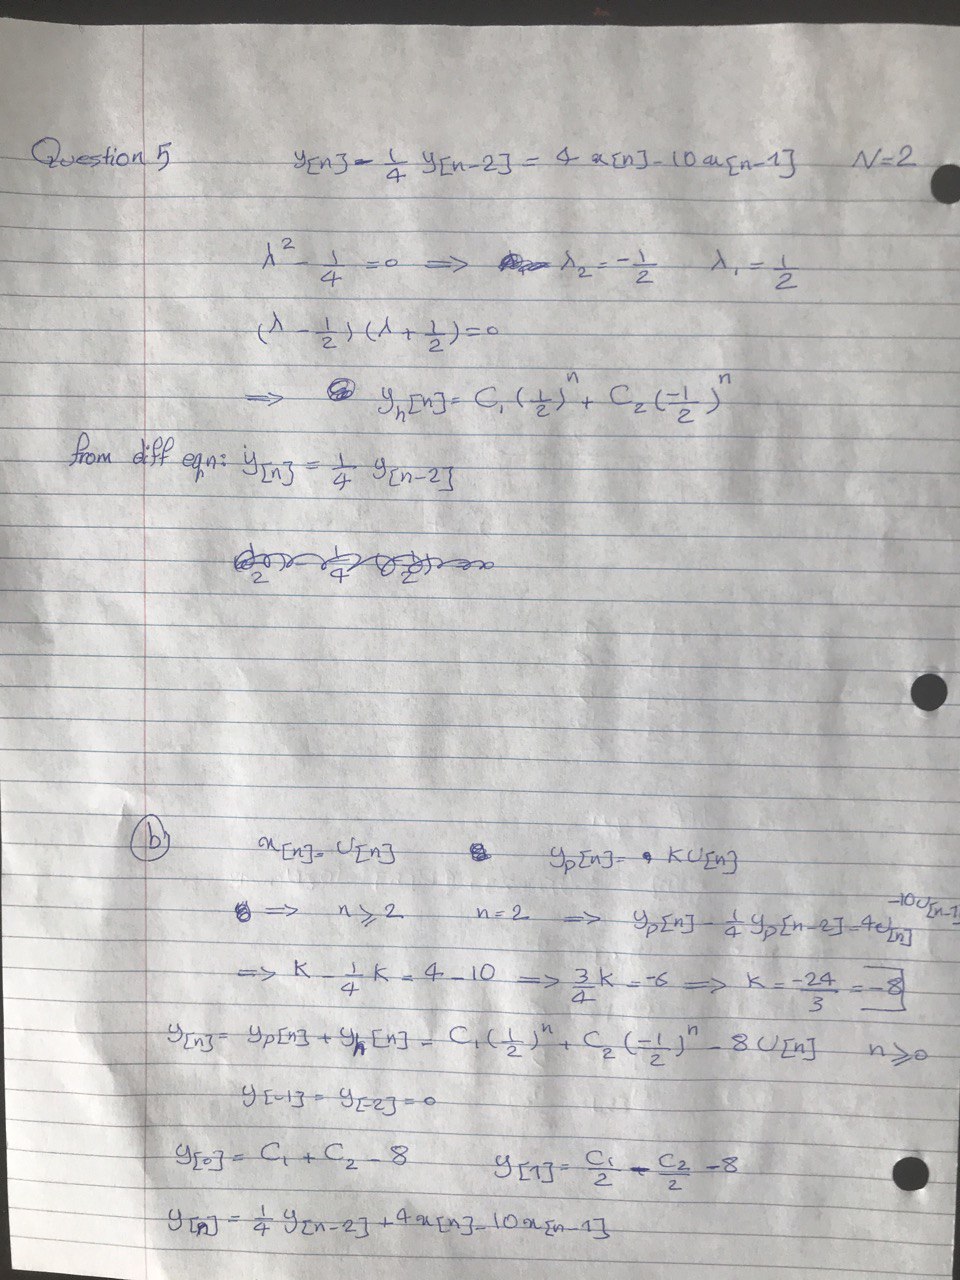 Question 5 y[n] - 1/4 y[n-2] = 4 x[n] - 10 x[n-1] N=2
λ² - 1/4 = 0 ⇒ λ₂ = -1/2 λ₁ = 1/2
(λ - 1/2)(λ + 1/2) = 0
⇒ yₕ[n] = C₁(1/2)ⁿ + C₂(-1/2)ⁿ
from diff eqn: y[n] = 1/4 y[n-2]
b) x[n] = U[n] yₚ[n] = KU[n]
⇒ n ≥ 2 n=2 ⇒ yₚ[n] - 1/4 yₚ[n-2] = 4U[n] -10U[n-1]
⇒ K - 1/4 K = 4 - 10 ⇒ 3/4 K = -6 ⇒ K = -24/3 = -8
y[n] = yₚ[n] + yₕ[n] = C₁(1/2)ⁿ + C₂(-1/2)ⁿ - 8U[n] n ≥ 0
y[-1] = y[-2] = 0
y[0] = C₁ + C₂ - 8 y[1] = C₁/2 - C₂/2 - 8
y[n] = 1/4 y[n-2] + 4x[n] - 10x[n-1]